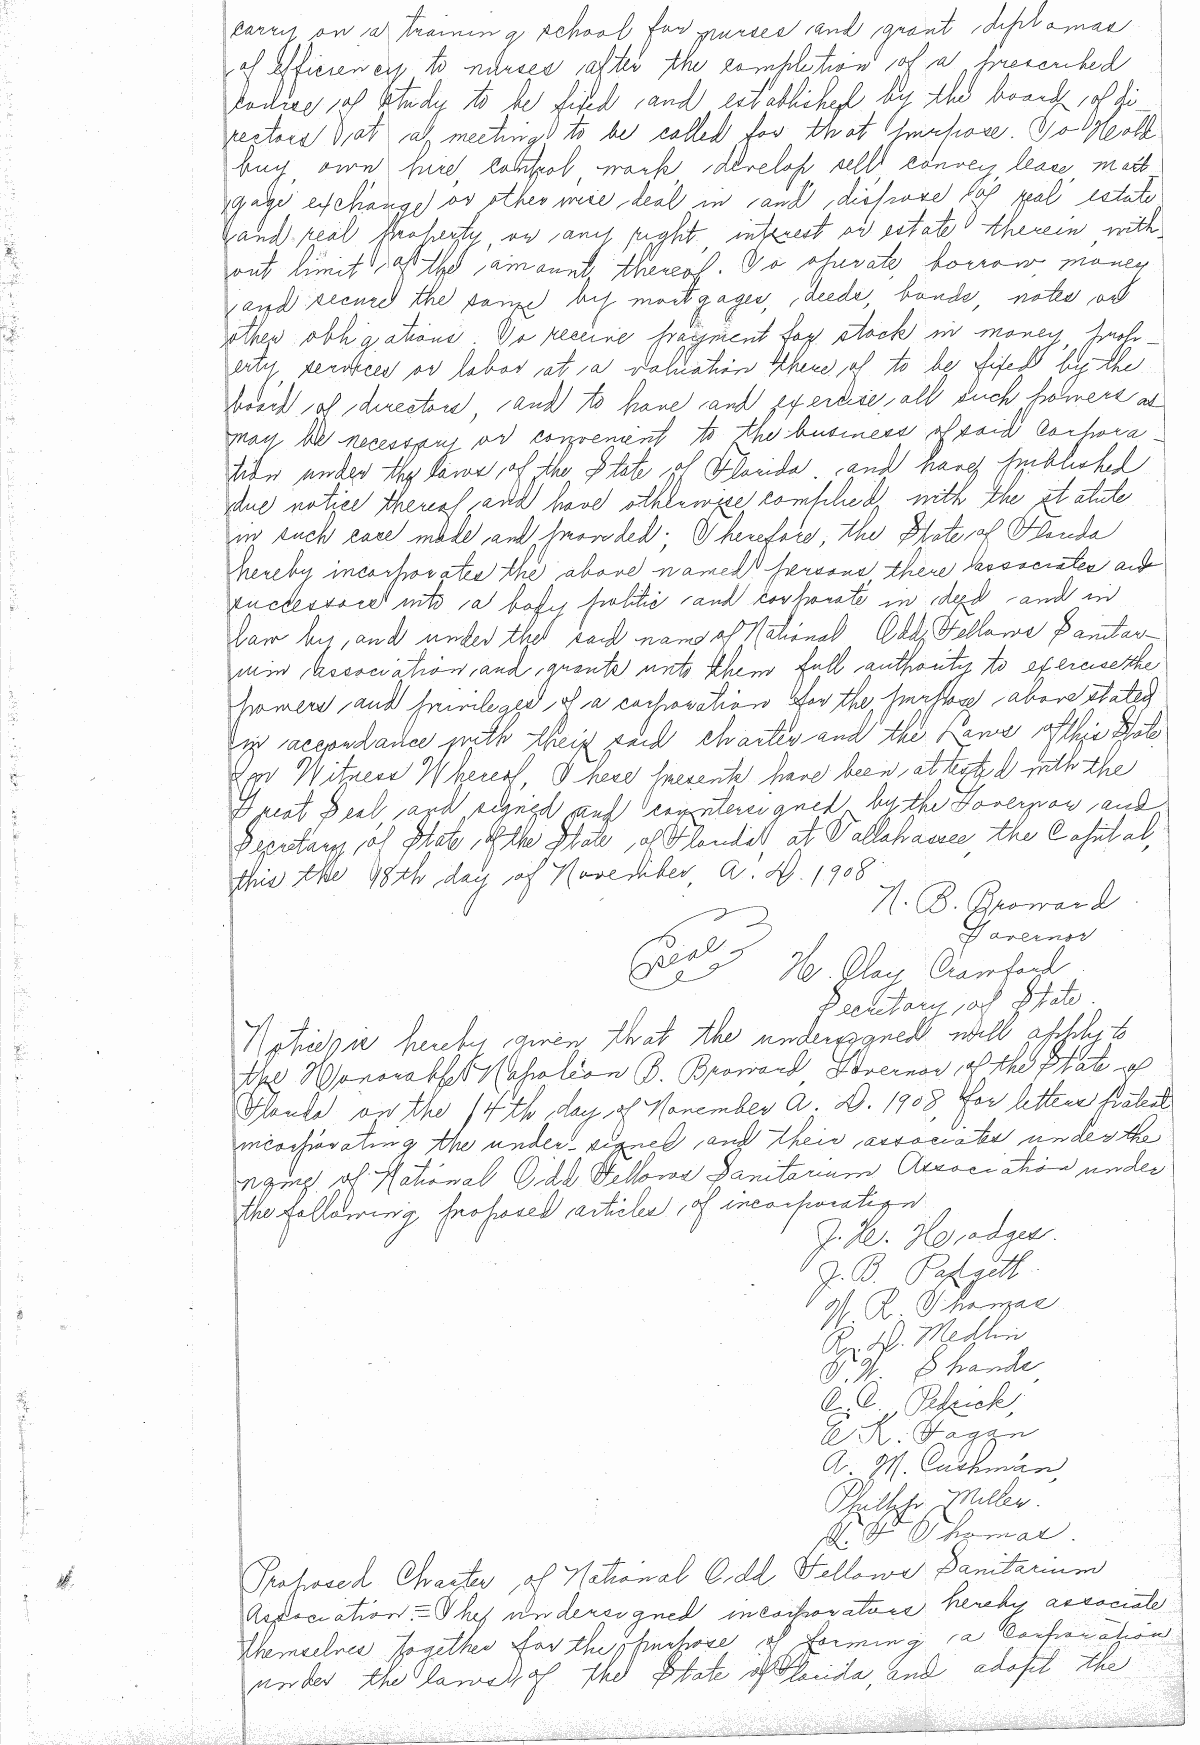 carry on a training school for nurses and grant diplomas
of efficiency to nurses after the completion of a prescribed
course of study to be fixed and established by the board of di-
rectors at a meeting to be called for that purpose. To Hold
buy, own hire, control, work, develop, sell, convey, lease, mort-
gage exchange or otherwise deal in and dispose of real estate
and real property, or any right, interest or estate therein, with-
out limit of the amount thereof. To operate, borrow money
and secure the same by mortgages, deeds, bonds, notes or
other obligations. To receive payment for stock in money, prop-
erty, services or labor at a valuation there of to be fixed by the
board of directors, and to have and exercise all such powers as
may be necessary or convenient to the business of said Corpora-
tion under the laws of the State of Florida. and have published
due notice thereof and have otherwise complied with the statute
in such care made and provided; Therefore, the State of Florida
hereby incorporates the above named persons, there associates and
successors into a body politic and corporate in deed and in
law by, and under the said name of National Odd Fellows Sanitar-
ium association and grants unto them full authority to exercise the
powers and privileges of a corporation for the purpose above stated
in accordance with their said charter and the Laws of this State
In Witness Whereof, These presents have been attested with the
Great Seal, and signed and countersigned by the Governor and
Secretary of State of the State of Florida, at Tallahassee, the Capital,
this the 18th day of November, A. D. 1908
N. B. Broward
Governor
Seal
H. Clay Crawford
Secretary of State.
Notice is hereby given that the undersigned will apply to
the Honorable Napoleon B. Broward, Governor of the State of
Florida on the 14th day of November A. D. 1908 for letters patent
incorporating the under-signed and their associates under the
name of National Odd Fellows Sanitarium Association under
the following proposed articles of incorporation
J. H. Hodges.
J. B. Padgett
W. R. Thomas
R. D. Medlin
T. W. Shands,
C. C. Pedrick,
E. K. Fagan
A. M. Cushman,
Phillip Miller.
F Thomas.
Proposed Charter of National Odd Fellows Sanitarium
Association:= The undersigned incorporators hereby associate
themselves together for the purpose of forming a Corporation
under the laws of the State of Florida, and adopt the